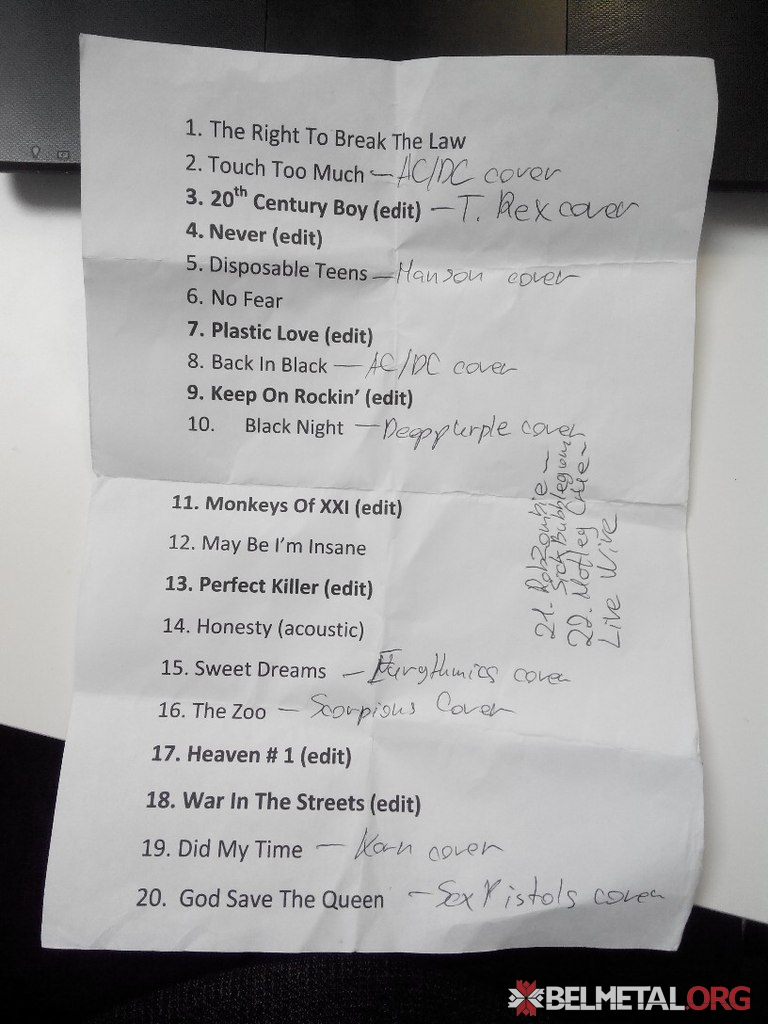 1. The Right To Break The Law
2. Touch Too Much — AC/DC cover
3. 20th Century Boy (edit) — T. Rex cover
4. Never (edit)
5. Disposable Teens — Manson cover
6. No Fear
7. Plastic Love (edit)
8. Back In Black — AC/DC cover
9. Keep On Rockin' (edit)
10. Black Night — Deep purple cover
11. Monkeys Of XXI (edit)
12. May Be I'm Insane
13. Perfect Killer (edit)
14. Honesty (acoustic)
15. Sweet Dreams — Eurythmics cover
16. The Zoo — Scorpions Cover
17. Heaven # 1 (edit)
18. War In The Streets (edit)
19. Did My Time — Korn cover
20. God Save The Queen — Sex Pistols cover
21. Rob Zombie —
Sick Bubblegum
22. Motley Crue —
Live Wire
BELMETAL.ORG